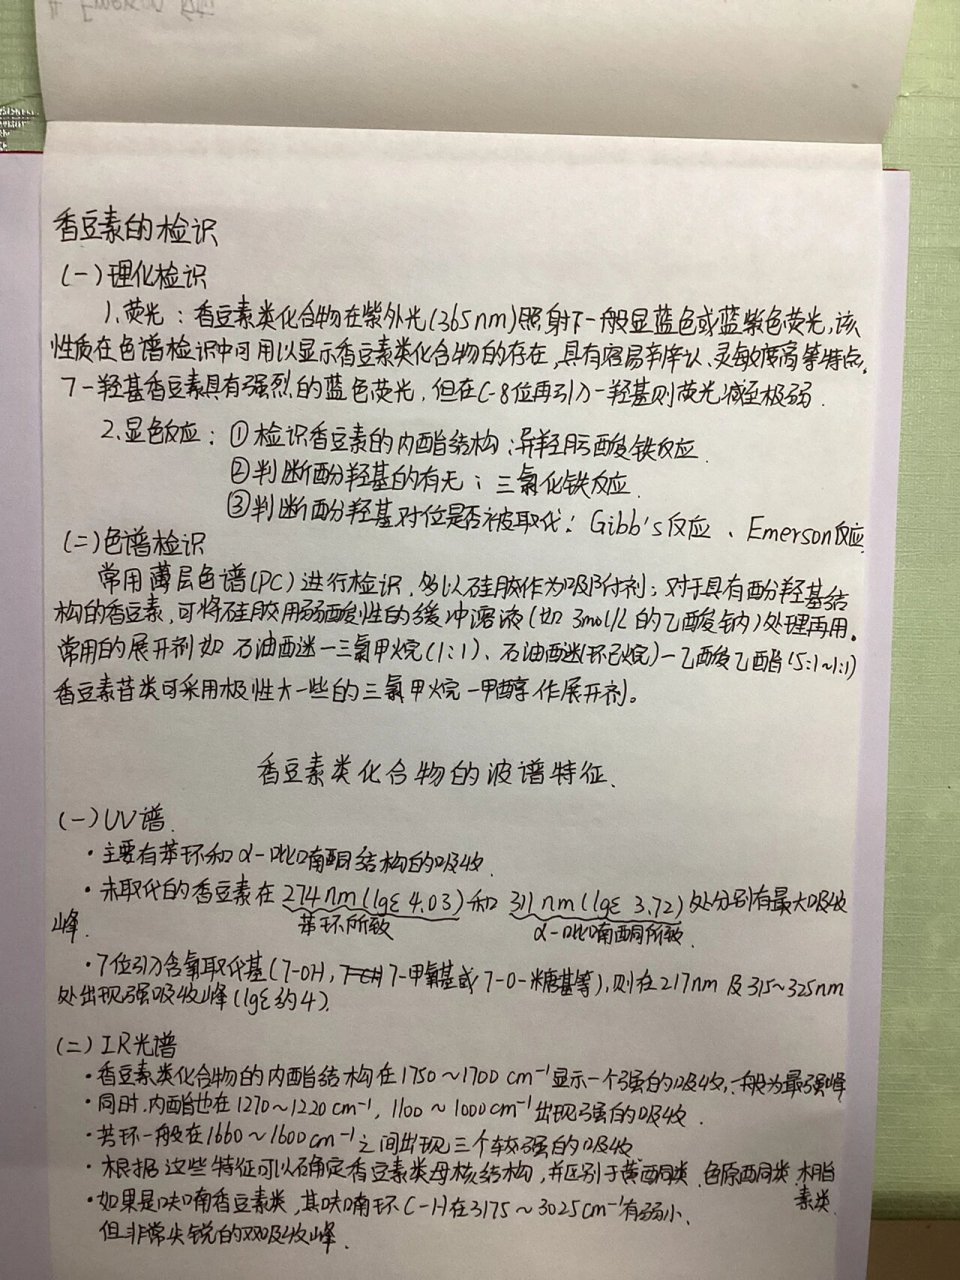 香豆素的检识
(一)理化检识
1.荧光：香豆素类化合物在紫外光(365nm)照射下一般显蓝色或蓝紫色荧光,该
性质在色谱检识中可用以显示香豆素类化合物的存在,具有容易辨认、灵敏度高等特点。
7-羟基香豆素具有强烈的蓝色荧光,但在C-8位再引入一羟基则荧光减至极弱.
2.显色反应：①检识香豆素的内酯结构:异羟肟酸铁反应.
②判断酚羟基的有无：三氯化铁反应.
③判断酚羟基对位是否被取代：Gibb's反应、Emerson反应
(二)色谱检识
常用薄层色谱(PC)进行检识,多以硅胶作为吸附剂；对于具有酚羟基结
构的香豆素,可将硅胶用弱酸性的缓冲溶液(如3mol/L的乙酸钠)处理再用。
常用的展开剂如石油醚-三氯甲烷(1:1)、石油醚(环己烷)-乙酸乙酯(5:1~1:1)
香豆素苷类可采用极性大一些的三氯甲烷-甲醇作展开剂。
香豆素类化合物的波谱特征.
(一)UV谱.
·主要有苯环和α-吡喃酮结构的吸收.
·未取代的香豆素在274nm(lgε 4.03)和311nm(lgε 3.72)处分别有最大吸收
苯环所致 α-吡喃酮所致.
峰.
·7位引入含氧取代基(7-OH, 7-甲氧基或7-O-糖基等),则在217nm及315~325nm
处出现强吸收峰(lgε约4).
(二)IR光谱
·香豆素类化合物的内酯结构在1750~1700cm⁻¹显示一个强的吸收,一般为最强峰
·同时,内酯也在1270~1220cm⁻¹, 1100~1000cm⁻¹出现强的吸收.
·芳环一般在1660~1600cm⁻¹之间出现三个较强的吸收.
·根据这些特征可以确定香豆素类母核结构,并区别于黄酮类、色原酮类、木脂
素类.
·如果是呋喃香豆素类,其呋喃环C-H在3175~3025cm⁻¹有弱小、
但非常尖锐的双吸收峰.